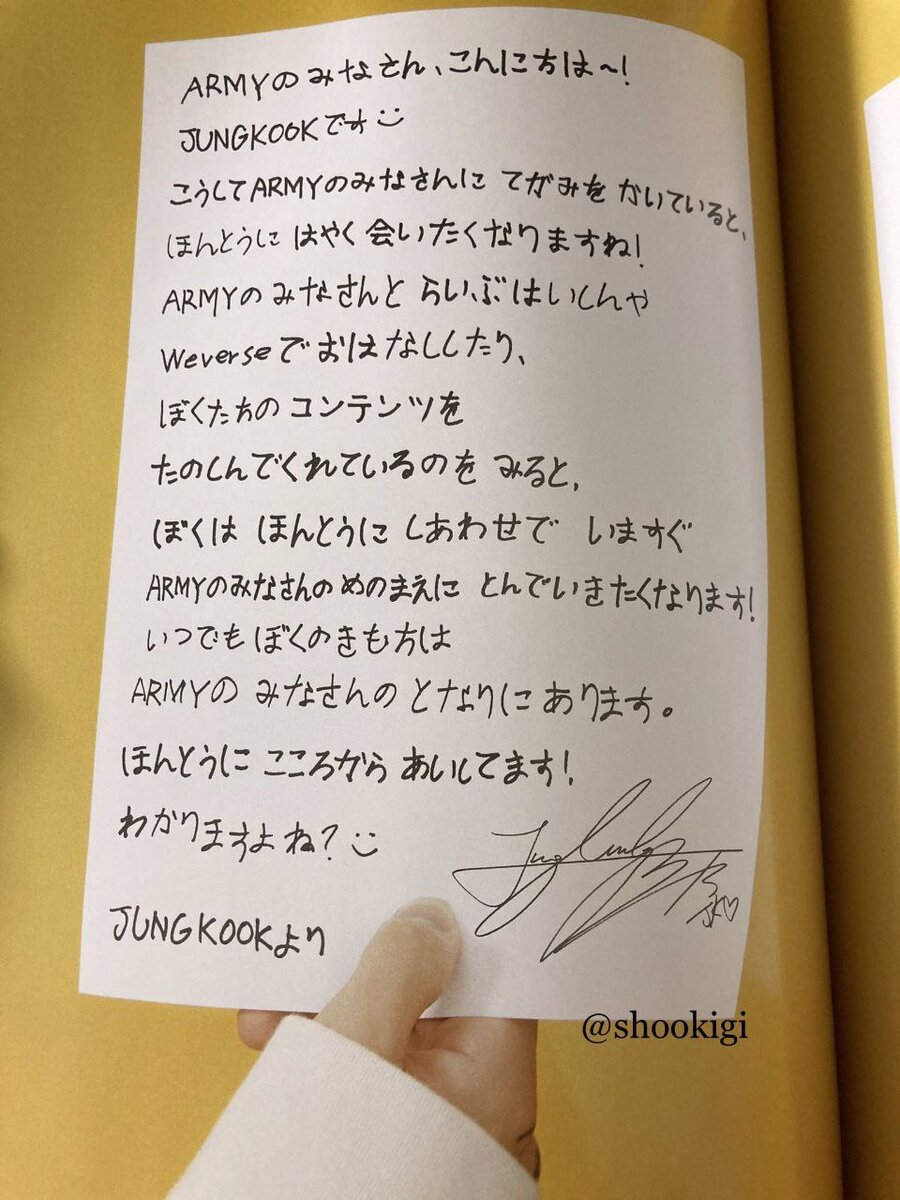 ARMYのみなさん、こんにちは〜!
JUNGKOOKです
こうしてARMYのみなさんに てがみを かいていると、
ほんとうに はやく 会いたくなりますね!
ARMYのみなさんと らいぶはいしんや
Weverseで おはなししたり、
ぼくたちの コンテンツを
たのしんでくれているのを みると、
ぼくは ほんとうに しあわせで いますぐ
ARMYのみなさんのめのまえに とんでいきたくなります!
いつでも ぼくのきもちは
ARMYの みなさんの となりに あります。
ほんとうに こころから あいしてます!
わかりますよね?
JUNGKOOKより
@shookigi